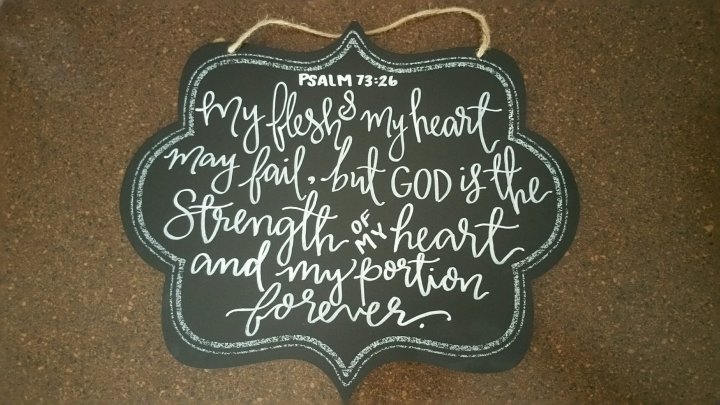 PSALM 73:26
My flesh & my heart
may fail, but GOD is the
Strength OF MY heart
and my portion
forever.